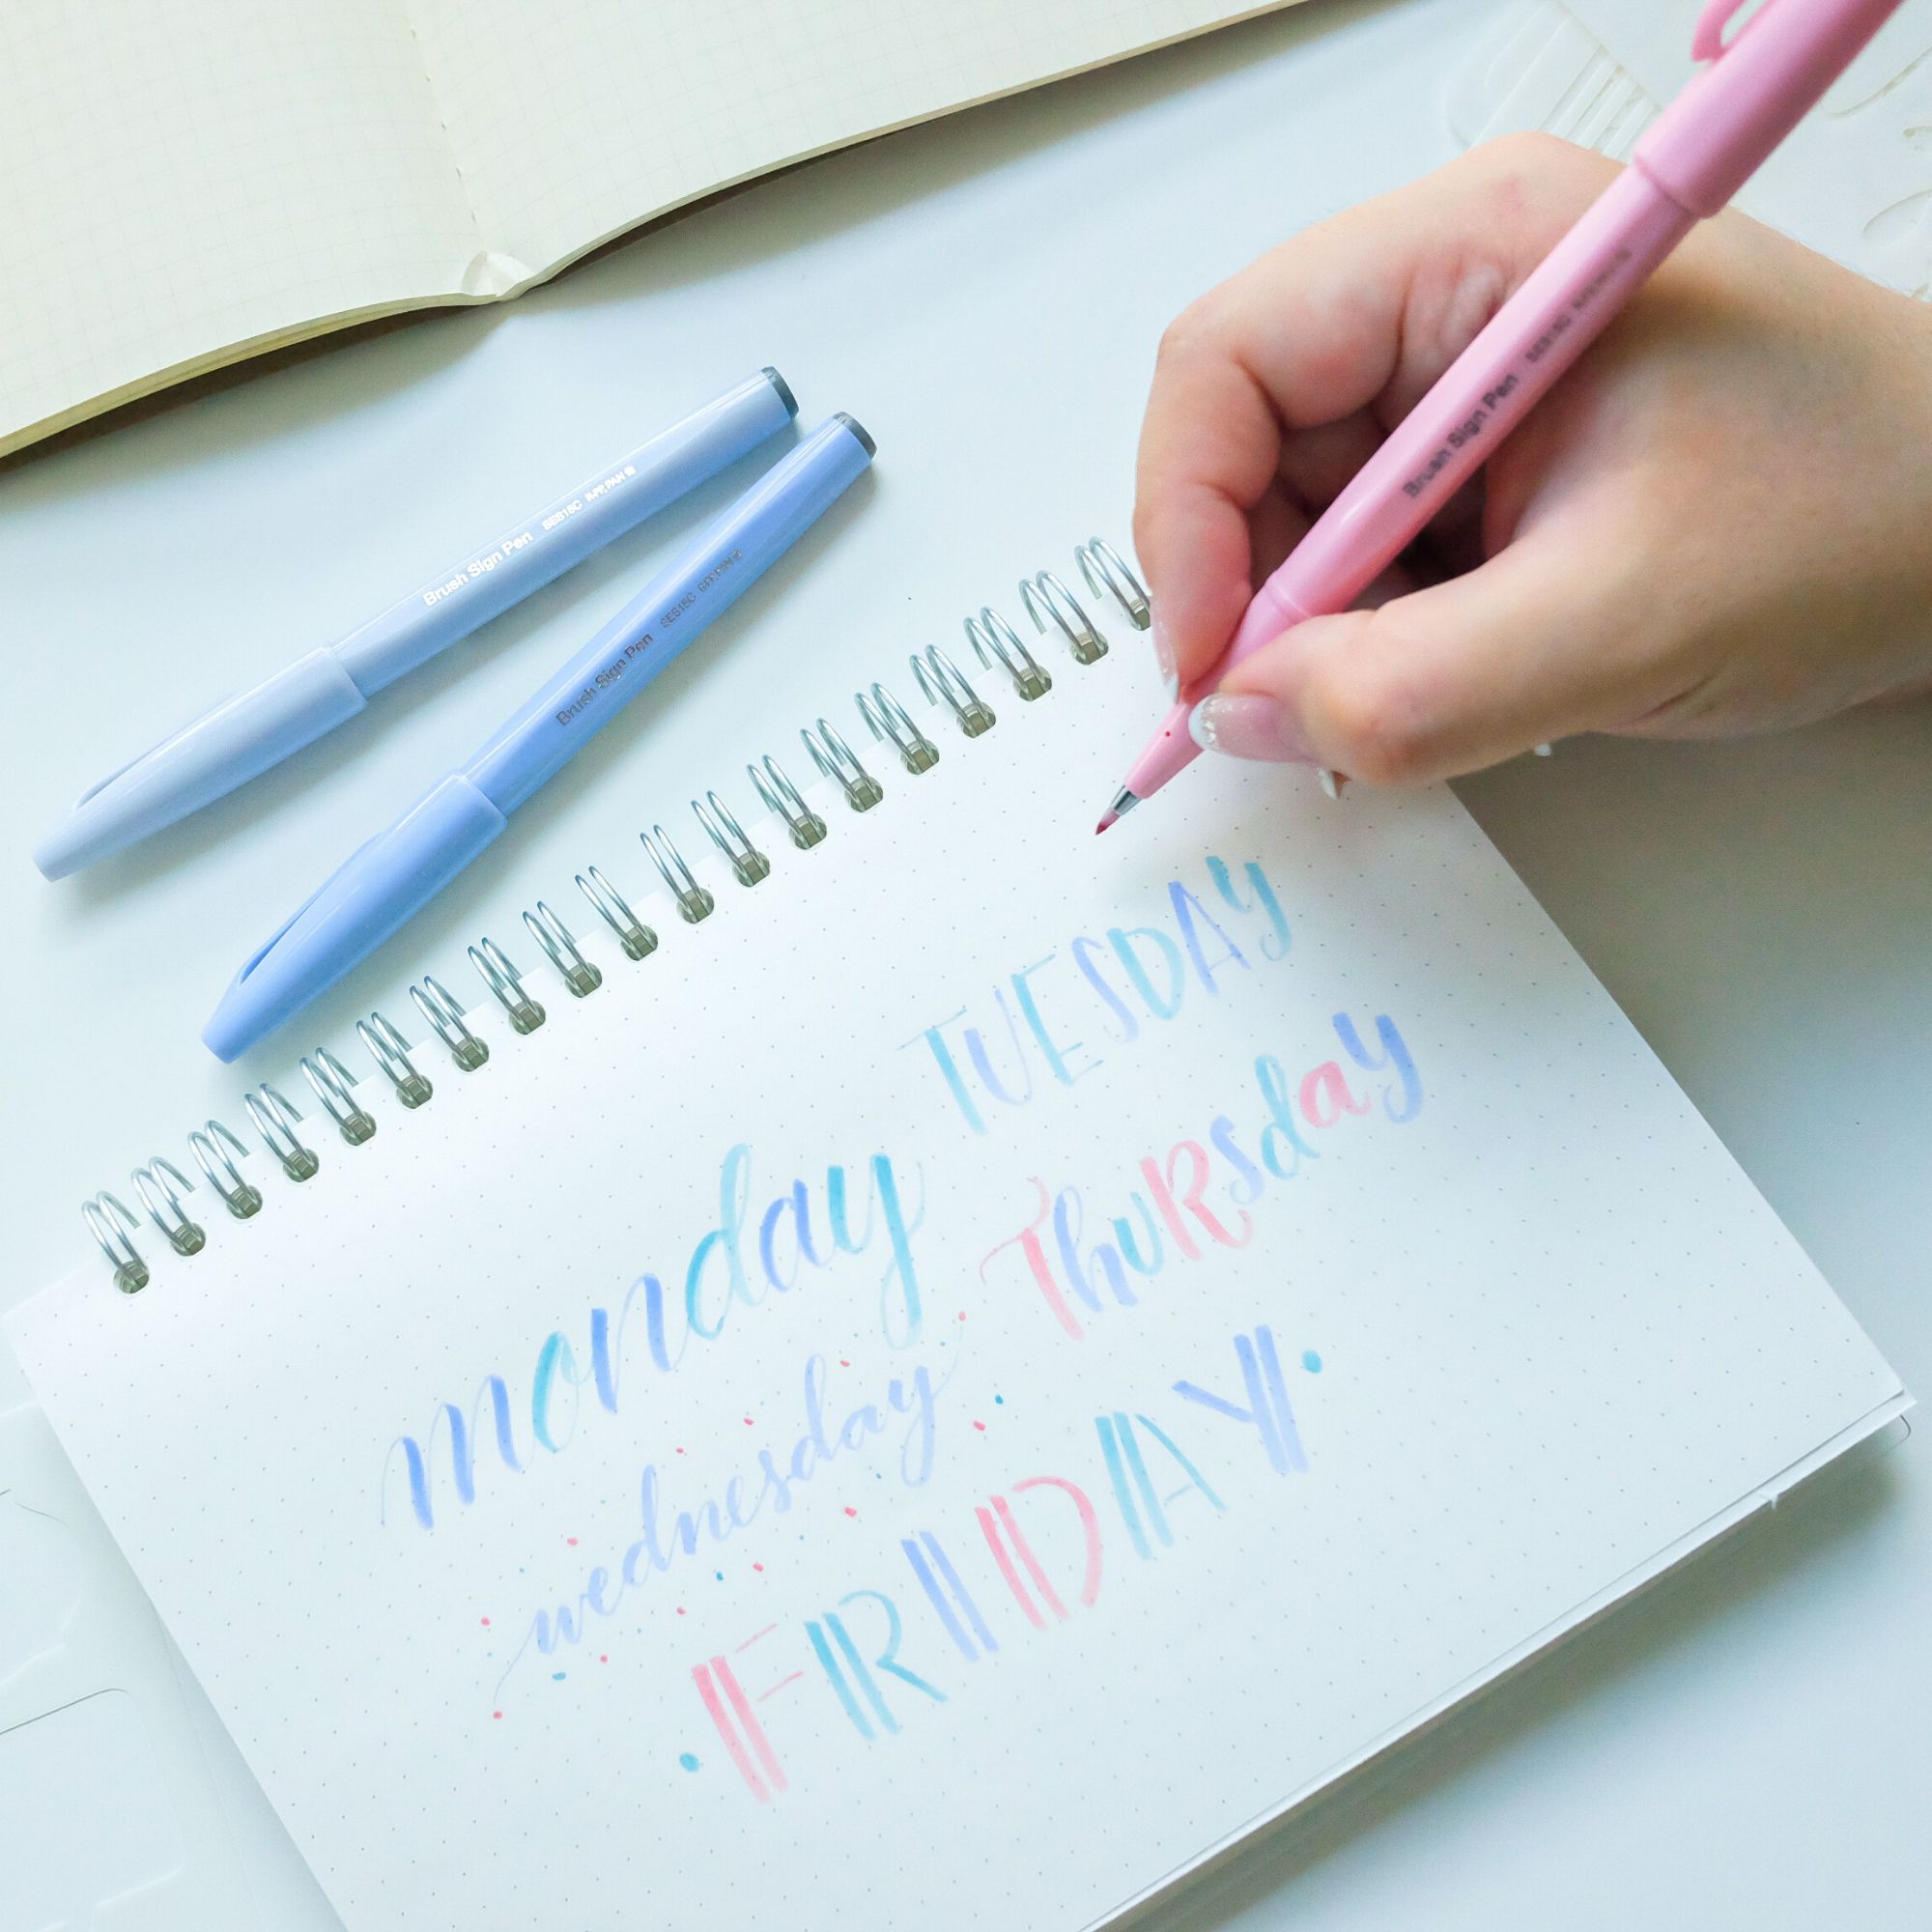 Brush Sign Pen SES15C
Brush Sign Pen SES15C
Brush Sign Pen SES15C
TUESDAY
monday
ThuRsday
wednesday
FRIDAY